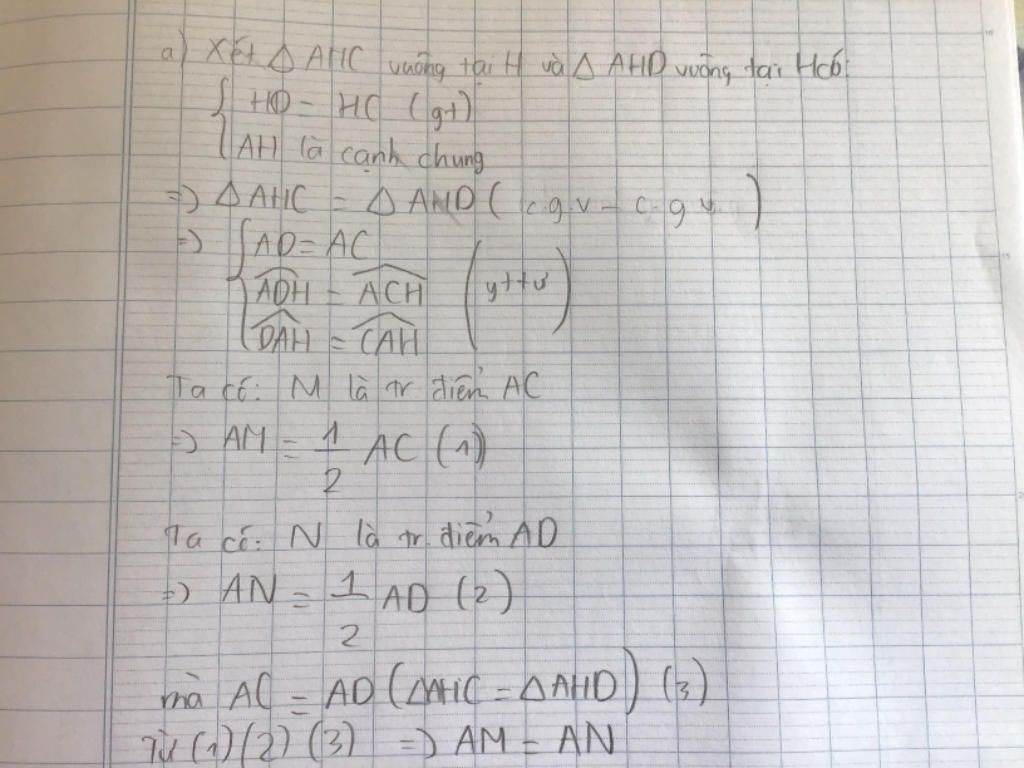 a) Xét △ AHC vuông tại H và △ AHD vuông tại H có
{ HD = HC (gt)
AH là cạnh chung
=> △ AHC = △ AHD ( c g v - c . g v )
=> { AD = AC
ADH = ACH (yttư)
DAH = CAH
Ta có: M là tr điểm AC
=> AM = 1/2 AC (1)
Ta có: N là tr. điểm AD
=> AN = 1/2 AD (2)
mà AC = AD (△AHC = △AHD) (3)
Từ (1) (2) (3) => AM = AN